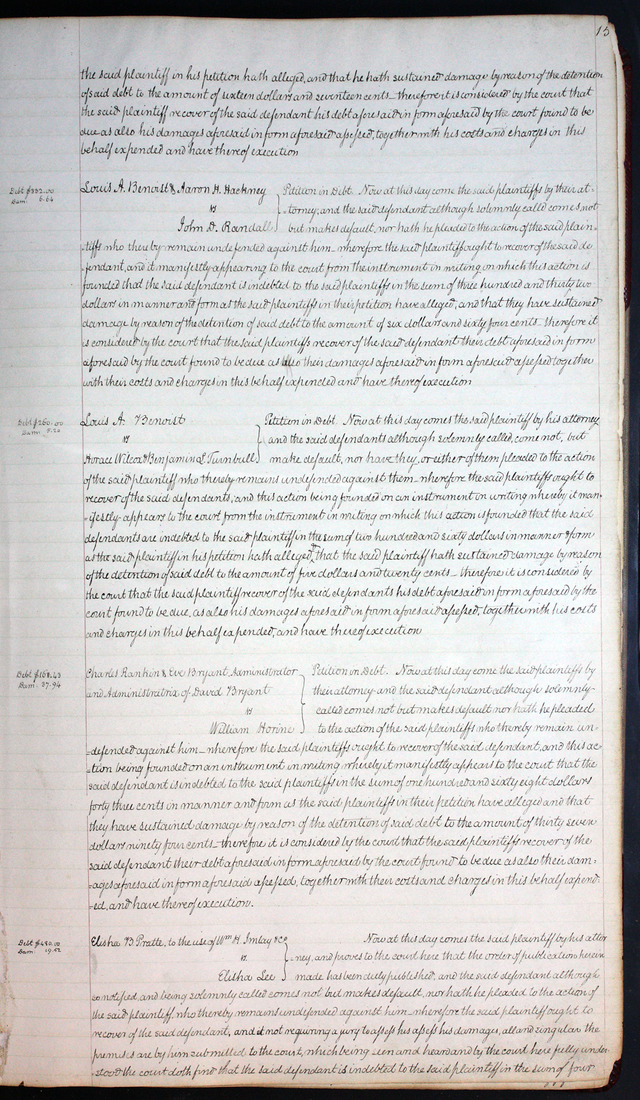 15
the said plaintiff in his petition hath alleged, and that he hath sustained damage by reason of the detention
of said debt to the amount of sixteen dollars and seventeen cents – therefore it is considered by the court that
the said plaintiff recover of the said defendant his debt aforesaid in form aforesaid by the court found to be
due as also his damages aforesaid in form aforesaid assessed, together with his costs and charges in this
behalf expended and have thereof execution
Debt $332.00
Dam. 6.64
Louis A. Benoist & Aaron H. Hackney
vs
John D. Randall
Petition in Debt. Now at this day come the said plaintiffs by their at-
torney, and the said defendant although solemnly called comes, not
but makes default, nor hath he pleaded to the action of the said plain-
tiffs who thereby remain undefended against him – wherefore the said plaintiffs ought to recover of the said de-
fendant, and it manifestly appearing to the court from the instrument in writing on which this action is
founded that the said defendant is indebted to the said plaintiffs in the sum of three hundred and thirty two
dollars in manner and form as the said plaintiffs in their petition have alleged, and that they have sustained
damage by reason of the detention of said debt to the amount of six dollars and sixty four cents – therefore it
is considered by the court that the said plaintiffs recover of the said defendant their debt aforesaid in form
aforesaid by the court found to be due as also their damages aforesaid in form aforesaid assessed together
with their costs and charges in this behalf expended and have thereof execution
Debt $260.00
Dam. 5.20
Louis A. Benoist
vs
Horace Wilcox & Benjamin L. Turnbull
Petition in Debt. Now at this day comes the said plaintiff by his attorney
and the said defendants although solemnly called, come not, but
make default, nor have they, or either of them pleaded to the action
of the said plaintiff who thereby remains undefended against them – wherefore the said plaintiff ought to
recover of the said defendants, and this action being founded on an instrument in writing whereby it man-
ifestly appears to the court from the instrument in writing on which this action is founded that the said
defendants are indebted to the said plaintiff in the sum of two hundred and sixty dollars in manner & form
as the said plaintiff in his petition hath alleged, & that the said plaintiff hath sustained damage by reason
of the detention of said debt to the amount of five dollars and twenty cents – therefore it is considered by
the court that the said plaintiff recover of the said defendants his debt aforesaid in form aforesaid by the
court found to be due, as also his damages aforesaid in form aforesaid assessed, together with his costs
and charges in this behalf expended, and have thereof execution
Debt $168.43
Dam. 37.94
Charles Rankin & Eve Bryant Administrator
and Administratrix of David Bryant
vs
William Horine
Petition in Debt. Now at this day come the said plaintiffs by
their attorney and the said defendant although solemnly
called comes not but makes default nor hath he pleaded
to the action of the said plaintiffs who thereby remain un-
-defended against him – wherefore the said plaintiffs ought to recover of the said defendant, and this ac-
tion being founded on an instrument in writing whereby it manifestly appears to the court that the
said defendant is indebted to the said plaintiffs in the sum of one hundred and sixty eight dollars
forty three cents in manner and form as the said plaintiffs in their petition have alleged and that
they have sustained damage by reason of the detention of said debt to the amount of thirty seven
dollars ninety four cents – therefore it is considered by the court that the said plaintiffs recover of the
said defendant their debt aforesaid in form aforesaid by the court found to be due as also their dam-
-ages aforesaid in form aforesaid assessed, together with their costs and charges in this behalf expend-
-ed, and have thereof execution.
Debt $430.00
Dam. 19.52
Elisha B. Pratte, to the use of Wm H. Imlay & Co
vs
Elisha Lee
Now at this day comes the said plaintiff by his attor
ney, and proves to the court here that the order of publication herein
made has been duly published, and the said defendant although
so notified, and being solemnly called comes not but makes default, nor hath he pleaded to the action of
the said plaintiff who thereby remains undefended against him – wherefore the said plaintiff ought to
recover of the said defendant, and it not requiring a jury to assess his assess his damages, all and singular the
premises are by him submitted to the court, which being seen and heard and by the court here fully under
stood the court doth find that the said defendant is indebted to the said plaintiff in the sum of four